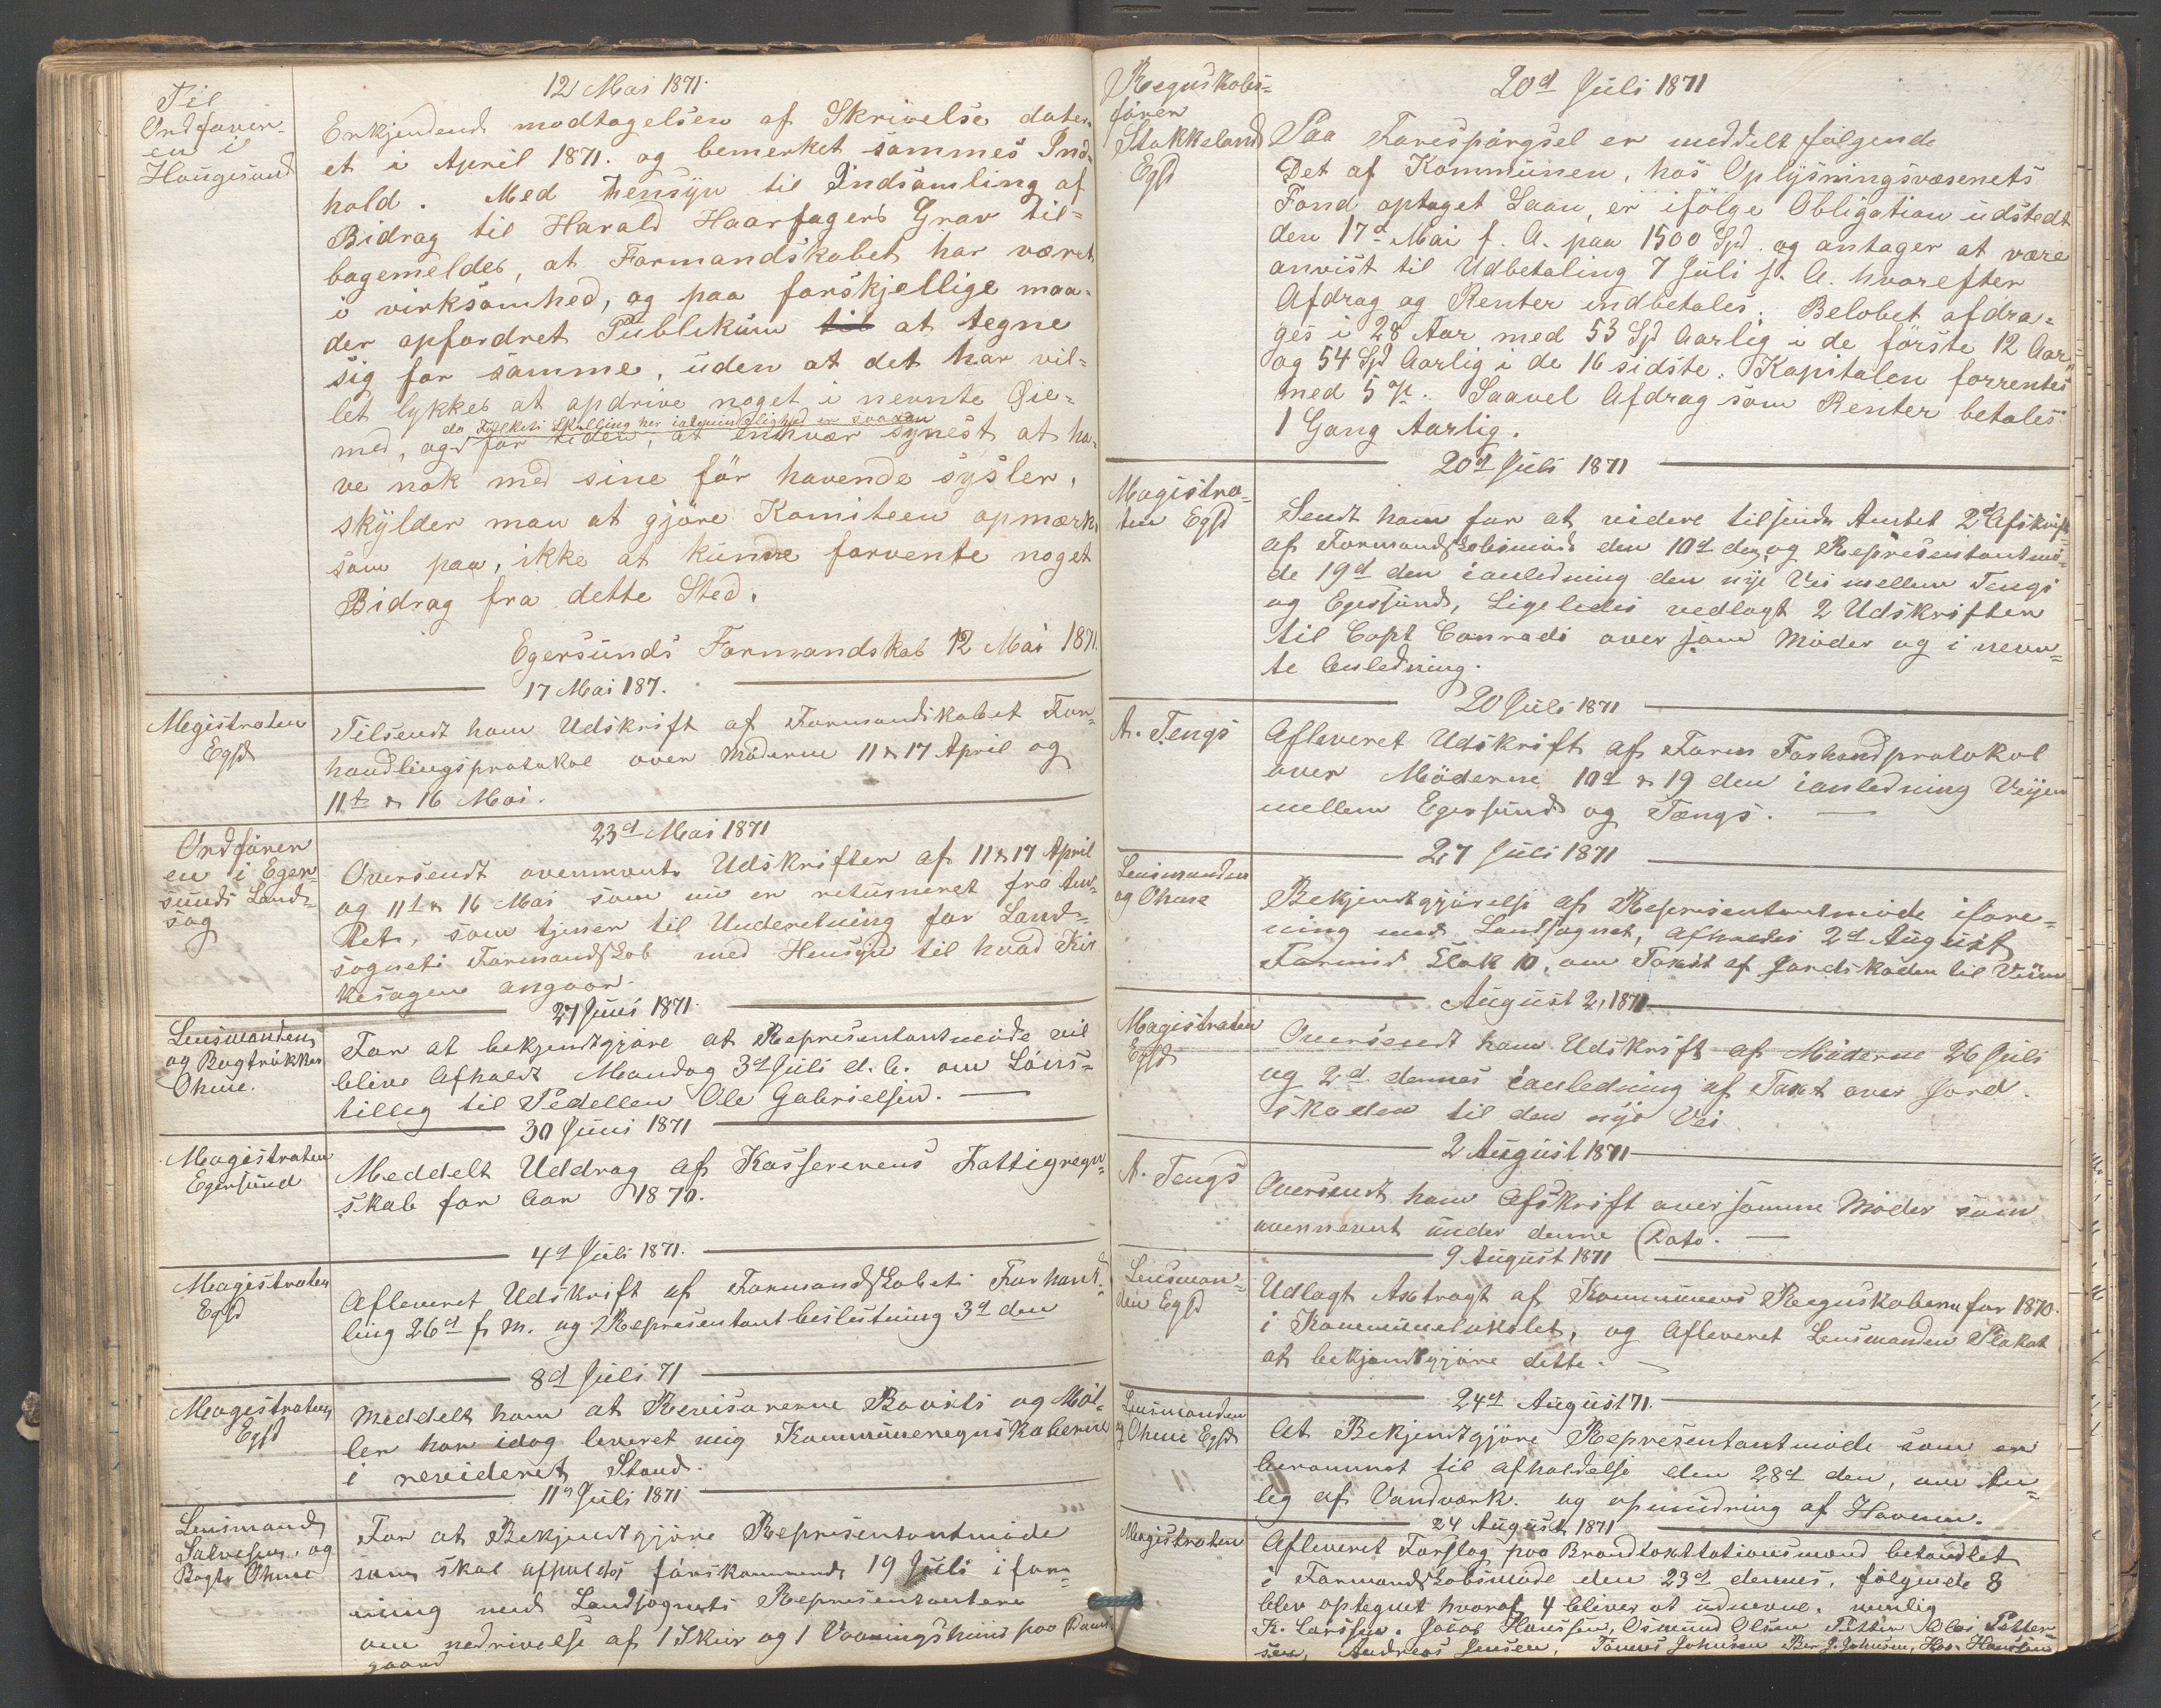 12 Mai 1871.
Til
Ordförer-
en i
Haugesund
Erkjendende modtagelsen af Skrivelse dater-
et i April 1871. og bemerket sammes Ind-
hold. Med hensyn til Indsamling af
Bidrag til Harald Haarfagers Grav til-
bagemeldes, at Formandskabet har været
i virksomhed, og paa forskjellige maa-
der opfordret Publikum til at tegne
sig for samme, uden at det har vil-
let lykkes at opdrive noget i nevnte Øie-
med, og
for tiden, at enhvær synest at ha-
ve nok med sine før havende sysler,
skylder man at gjöre Komiteen opmærk-
som paa, ikke at kunde forvente noget
Bidrag fra dette Sted.
Egersunds Formandskab 12 Mai 1871.
17 Mai 187.
Megistraten
Egsd
Tilsendt ham Udskrift af Formandskabet For-
handlingsprotokol over Möderne 11 & 17 April og
11te & 16 Mai.
23d Mai 1871
Ordförer
en i Eger-
sunds Land-
sog
Oversendt ovennevnte Udskrifter af 11 & 17 April
og 11t & 16 Mai som nu er returneret fra Am-
tet, som tjener til Underetning for Land-
sognets Formandskab med Hensyn til hvad Kir
kesagen angaar.
27 Juni 1871.
Lensmanden
og Bagtrökker
Ohme.
For at bekjendtgjöre at Representantmöde vil
blive Afholdt Mandag 3d Juli d. A. om Löns-
tilleg til Pedellen Ole Gabrielsen.
30 Juni 1871
Magistraten
Egersund
Meddelt Uddrag af Kassererens Fattigregn-
skab for Aar 1870.
4d Juli 1871.
Magistraten
Egsd
Afleveret Udskrift af Formandskabets Forhand-
ling 26d f. M. og Representantbeslutning 3d den
8d Juli 71
Magistraten
Egsd
Meddelt ham at Revisorerne Bovits og Möl-
ler har idag leveret mig Kommuneregnskaberne
i revideret Stand.
11 Juli 1871
Lensmand
Salvesen og
Bagtr Ohme
For at Bekjendtgjöre Representantmöde
som skal afholdes förskommende 19 Juli i for-
ening med Landsognets Representantere
om nedrivelse af 1 Skur og 1 Vaaningshuus paa Dams
gaard
Regnskabs-
förer
Stokkeland
Egsd
20d Juli 1871
Paa Forespörgsel er meddelt følgende
Det af Kommunen, hos Oplysningsvæsenets
Fond optaget Laan, er ifölge Obligation udstedt
den 17d Mai f. A. paa 1500 Spd. og antager at være
anvist til Udbetaling 7 Juli f. A. hvorefter
Afdrag og Renter indbetales. Belobet afdra-
ges i 28 Aar med 53 Spd Aarlig i de förste 12 Aar
og 54 Spd Aarlig i de 16 sidste. Kapitalen forrentes
med 5 %. Saavel Afdrag som Renter betales
1 Gang Aarlig.
20d Juli 1871
Magistra-
ten Egsd
Sendt ham for at videre tilsende Amtet 2d Afskrift
af Formandskabsmöde den 10d den og Representantmö-
de 19d den ianledning den nye Vei mellem Tengs
og Egersund, Ligeledes vedlagt 2 Udskrifter
til Capt Conradi over samme Möder og i nevn-
te Anledning.
20 Juli 1871
A. Tengs
Afleveret Udskrift af Form Forhandprotokol
over Möderne 10d & 19 den ianledning Veijen
mellem Egersund og Tengs.
27 Juli 1871
Lensmanden
og Ohme
Bekjendtgjörelse af Representantmöde ifore-
ning med Landsognet, afholdes 2d August
Formid. Klok 10, om Taxst af Jordskaden til Veien
August 2, 1871
Magistraten
Egsd
Oversendt ham Udskrift af Möderne 26 Juli
og 2d dennes ianledning af Taxt over Jord-
skaden til den nye Vei
2 August 1871
A. Tengs
Oversendt ham Afskrift over samme Möder som
ovennevnt under denne Dato.
9 August 1871
Lensman-
den Egsd
Udlagt Axtragt af Kommunens Regnskaberne for 1870.
i Kommunelokalet, og Afleveret Lensmanden Plakat
at bekjendtgjöre dette.
24d August 71.
Lensmanden
og Ohme Egsd
At Bekjendtgjöre Representantmöde som er
berammet til afholdelse den 28d den, om An-
leg af Vandværk. og opmudring af Havnen.
24 August 1871
Magistraten
Afleveret Forslag paa Brandtaxttationsmand behandlet
i Formandskabsmöde den 23d dennes, følgende 8
blev optegnet hvoraf 4 bliver at udnevne. nemlig
K. Larssen, Jacob Hanssen, Osmund Olsen Petter Olai Petter-
sen, Andreas Jensen, Tönnes Johnsen Ber J. Johnsen, Has. Hanssen